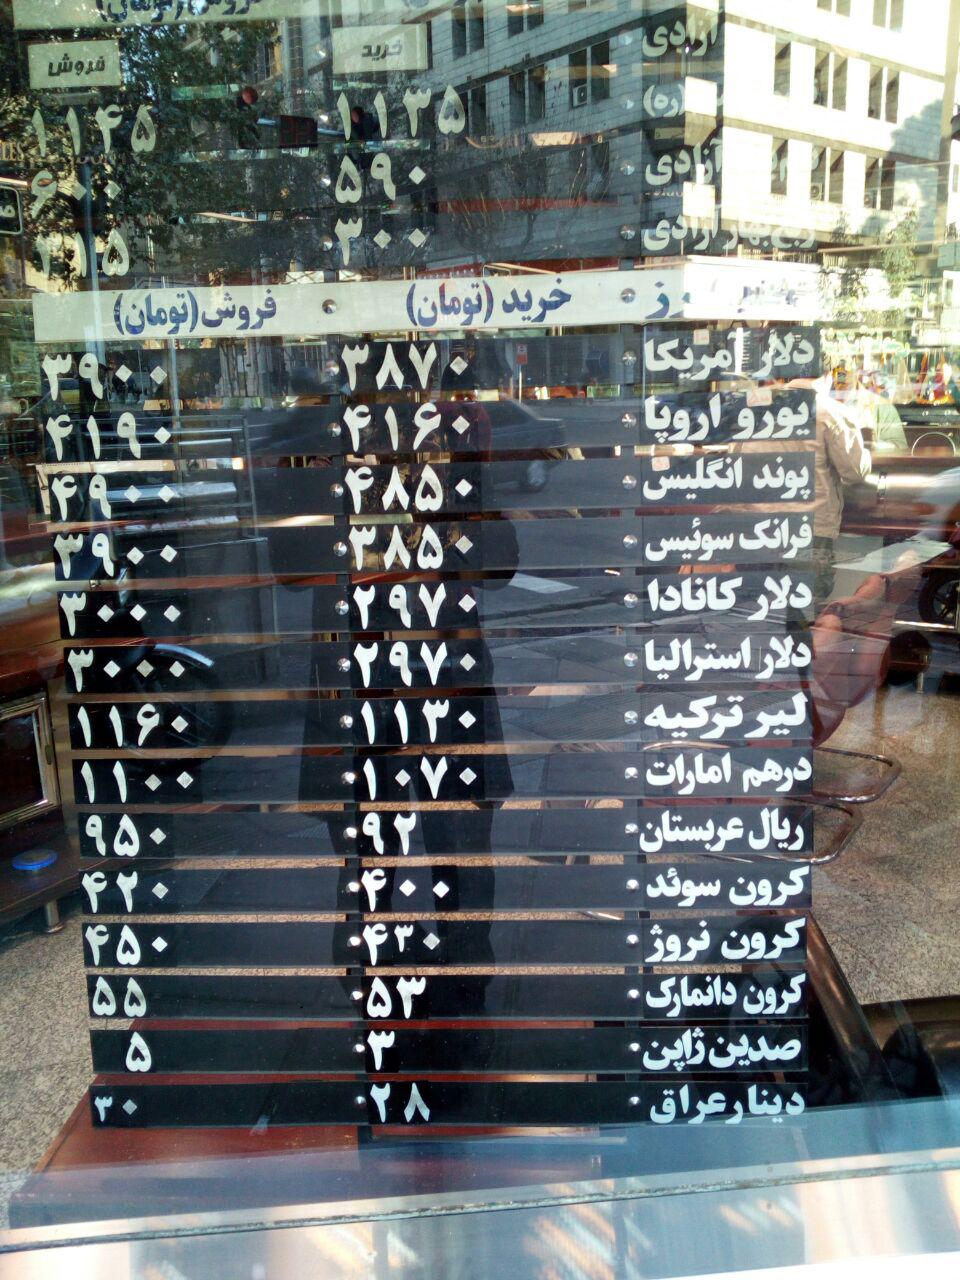 فروش (تومان)
خرید فروش
آزادی ۱۱۳۵ ۱۱۴۵
آزادی ۵۹۰ ۶۰۰
ربع بهار آزادی ۳۰۰ ۳۱۵
خرید (تومان) فروش (تومان)
دلار آمریکا ۳۸۷۰ ۳۹۰۰
یورو اروپا ۴۱۶۰ ۴۱۹۰
پوند انگلیس ۴۸۵۰ ۴۹۰۰
فرانک سوئیس ۳۸۵۰ ۳۹۰۰
دلار کانادا ۲۹۷۰ ۳۰۰۰
دلار استرالیا ۲۹۷۰ ۳۰۰۰
لیر ترکیه ۱۱۳۰ ۱۱۶۰
درهم امارات ۱۰۷۰ ۱۱۰۰
ریال عربستان ۹۲ ۹۵۰
کرون سوئد ۴۰۰ ۴۲۰
کرون نروژ ۴۳۰ ۴۵۰
کرون دانمارک ۵۳ ۵۵
صدین ژاپن ۳ ۵
دینار عراق ۲۸ ۳۰